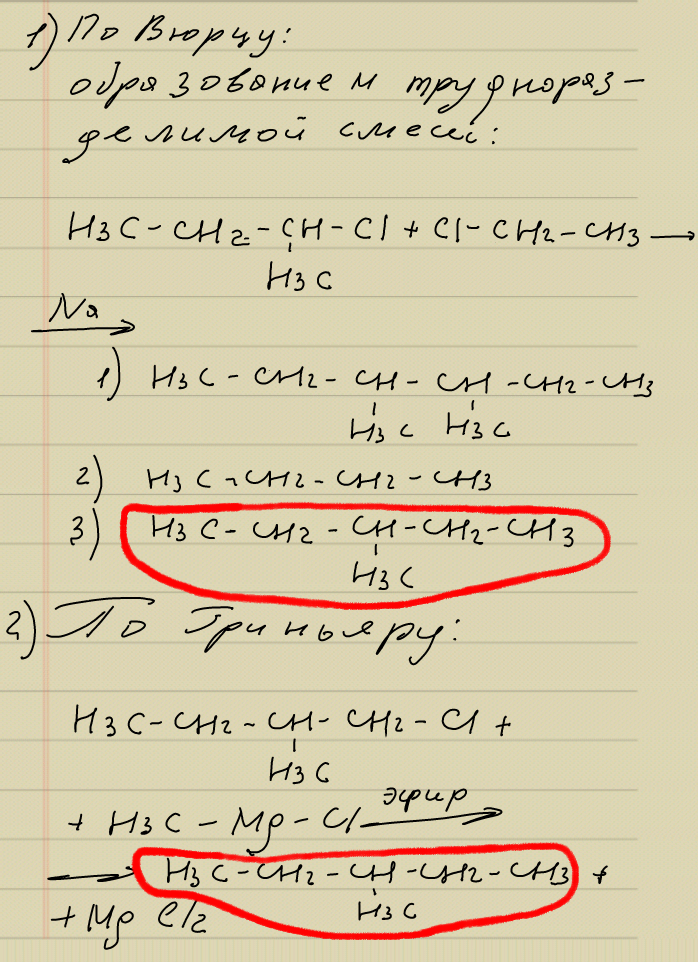 1) По Вюрцу:
образованием трудораз-
делимой смеси:
H3C - CH2 - CH - Cl + Cl - CH2 - CH3 →
H3C
Na
1) H3C - CH2 - CH - CH - CH2 - CH3
H3C H3C
2) H3C - CH2 - CH2 - CH3
3) H3C - CH2 - CH - CH2 - CH3
H3C
2) По Гриньяру:
H3C - CH2 - CH - CH2 - Cl +
H3C
+ H3C - Mg - Cl эфир →
→ H3C - CH2 - CH - CH2 - CH3 +
H3C
+ Mg Cl2